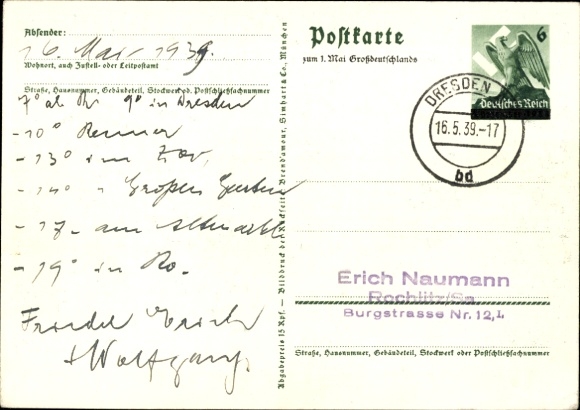 Absender:
16. Mai 1939.
Wohnort, auch Zustell- oder Leitpostamt
Straße, Hausnummer, Gebäudeteil, Stockwerk od. Postschließfachnummer
7° ab Ro 9° in Dresden
- 10° Renner
- 13° im Zoo,
- 14° " Großen Garten
- 17- am Altmarkt
- 19° in Ro.
Friedel Erich
+ Wolfgang.
Abgabepreis 15 Rpf. — Bilddruck der Rückseite: Brend'amour, Simhart & Co., München
Postkarte
zum 1. Mai Großdeutschlands
6
Deutsches Reich
DRESDEN
16.5.39.-17
bd
Erich Naumann
Rochlitz/Sa.
Burgstrasse Nr. 12, I.
Straße, Hausnummer, Gebäudeteil, Stockwerk oder Postschließfachnummer